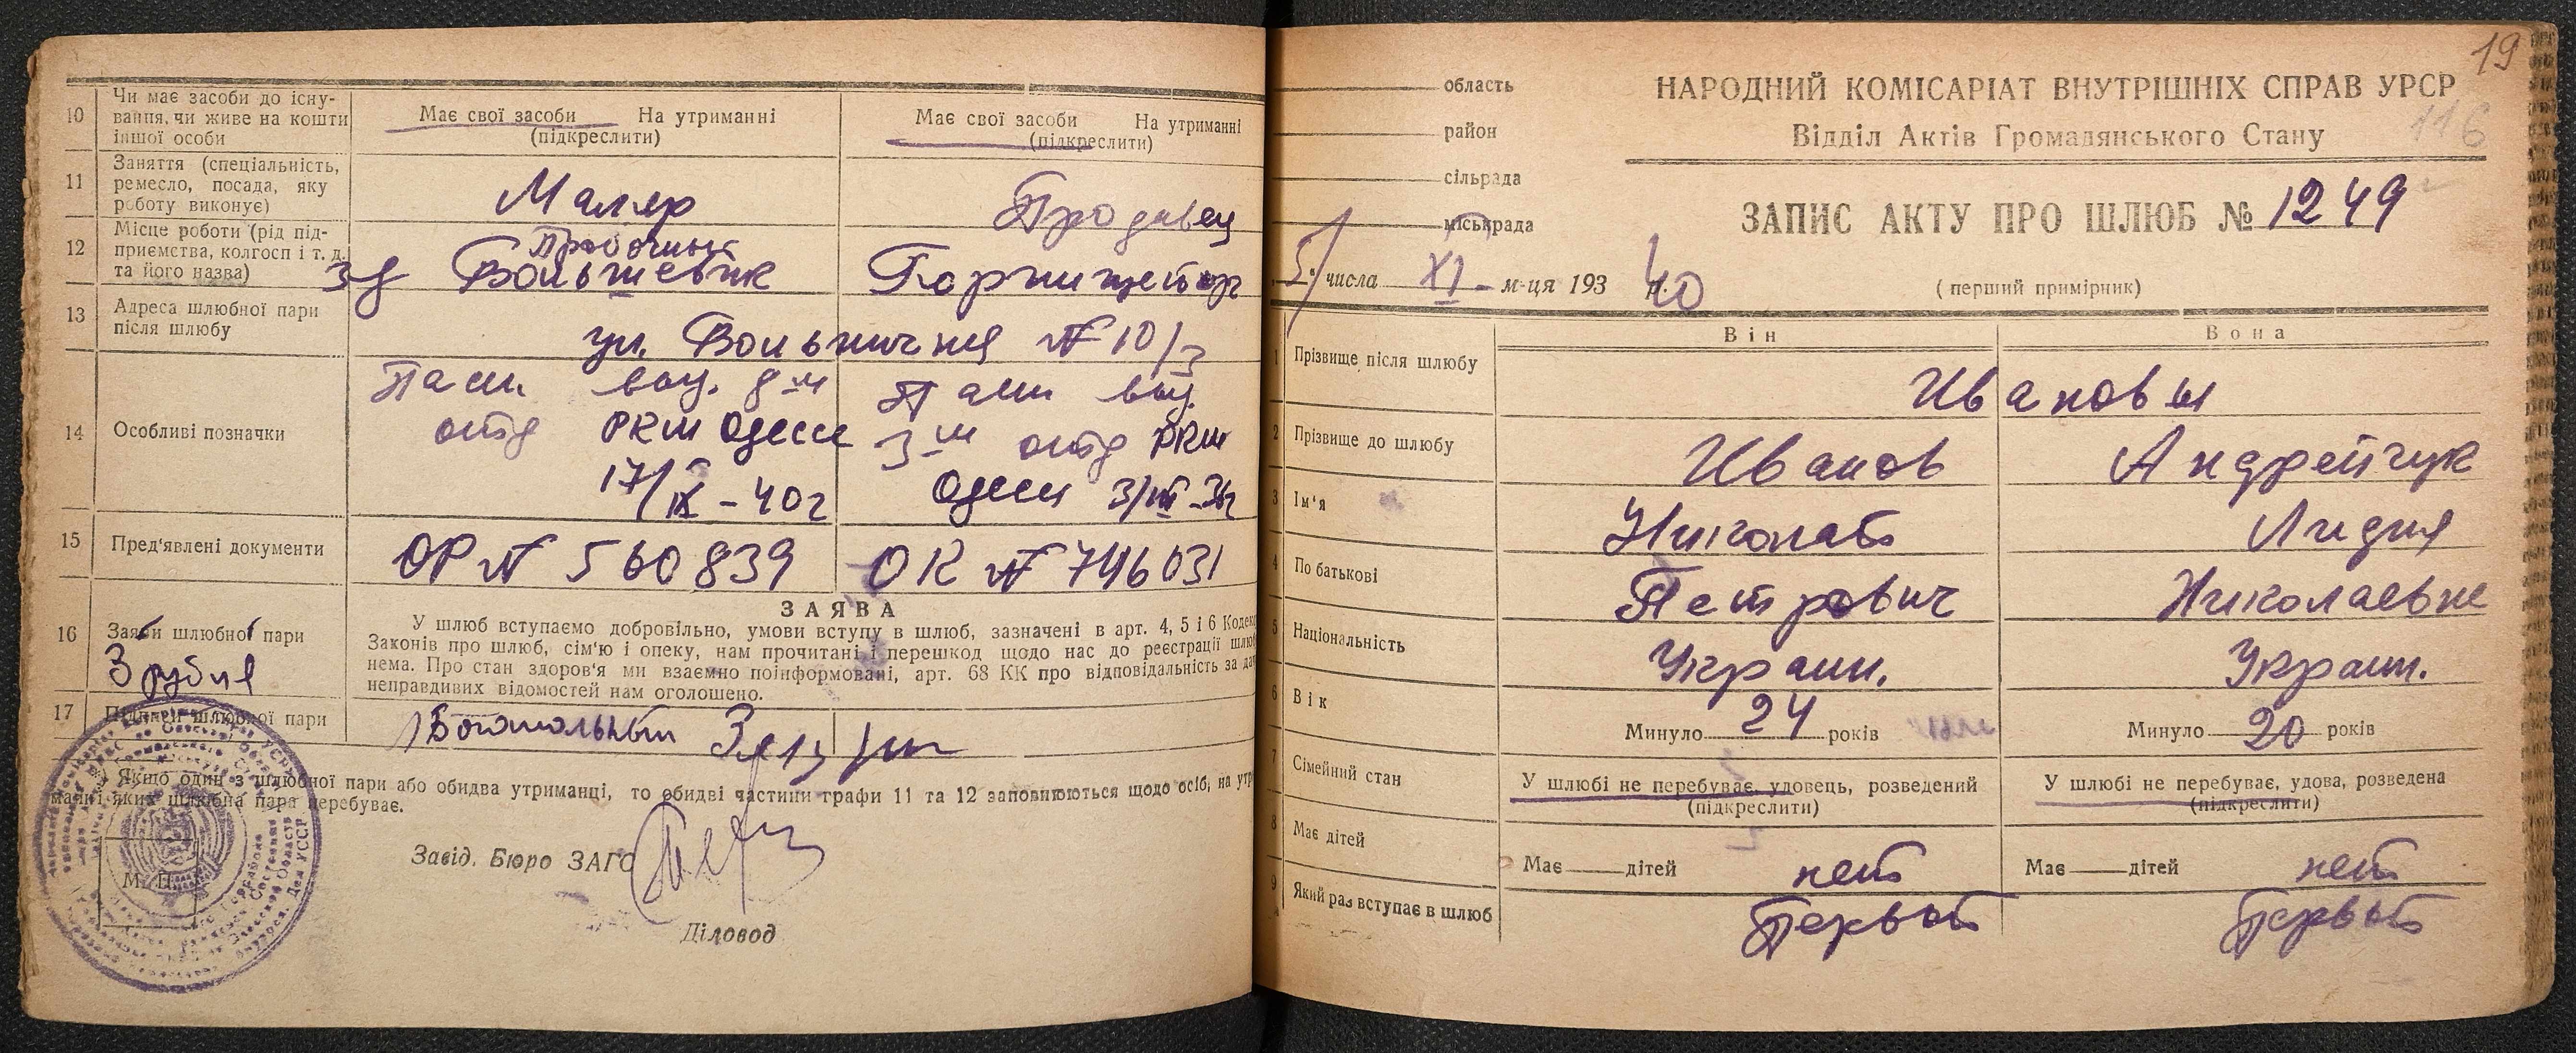 10 Чи має засоби до існу-
вання, чи живе на кошти
іншої особи
Має свої засоби На утриманні
(підкреслити)
Має свої засоби На утриманні
(підкреслити)
11 Заняття (спеціальність,
ремесло, посада, яку
роботу виконує)
Маляр
Продавец
12 Місце роботи (рід під-
приємства, колгосп і т. д.
та його назва)
З-д Большевик
Горпищеторг
13 Адреса шлюбної пари
після шлюбу
ул. № 10/3
14 Особливі позначки
Пасп. выд. 8-м
отд РКМ Одессе
17/IX - 40 г
Пасп выд.
3-м отд РКМ
Одесси
15 Пред'явлені документи
ОР № 560839
ОК № 746031
16 Заяви шлюбної пари
3 рубля
ЗАЯВА
У шлюб вступаємо добровільно, умови вступу в шлюб, зазначені в арт. 4, 5 і 6 Кодек
Законів про шлюб, сім'ю і опеку, нам прочитані і перешкод щодо нас до реєстрації шлю
нема. Про стан здоров'я ми взаємно поінформовані, арт. 68 КК про відповідальність за да
неправдивих відомостей нам оголошено.
17 Підписи шлюбної пари
Якщо один з шлюбної пари або обидва утриманці, то обидві частини графи 11 та 12 заповнюються щодо осіб, на утри
манні яких шлюбна пара перебуває.
Завід. Бюро ЗАГС
М. П.
Діловод
19
116
область
район
сільрада
міськрада
НАРОДНИЙ КОМІСАРІАТ ВНУТРІШНІХ СПРАВ УРСР
Відділ Актів Громадянського Стану
ЗАПИС АКТУ ПРО ШЛЮБ № 1249
5 числа XI м-ця 193 40 р.
(перший примірник)
Він Вона
1 Прізвище після шлюбу
Ивановы
2 Прізвище до шлюбу
Иванов Андрейчук
3 Ім'я
Николай Лидия
4 По батькові
Петрович Николаевне
5 Національність
Украин. Украин.
6 Вік
Минуло 24 років Минуло 20 років
7 Сімейний стан
У шлюбі не перебуває, удовець, розведений
(підкреслити)
У шлюбі не перебуває, удова, розведена
(підкреслити)
8 Має дітей
Має дітей нет Має дітей нет
9 Який раз вступає в шлюб
Первый Первый